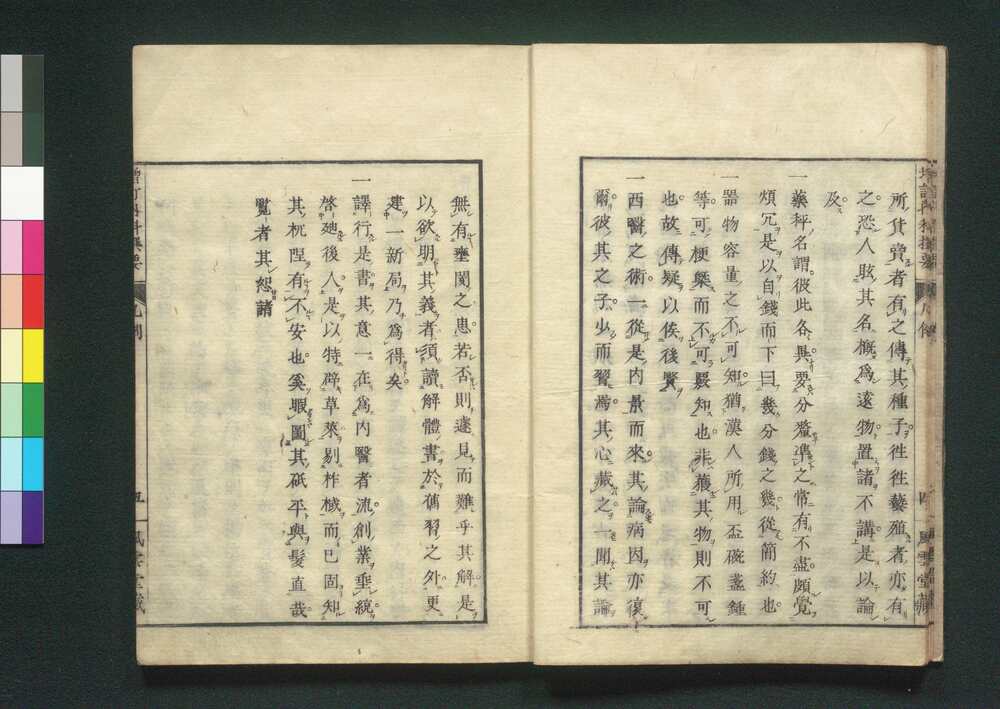 所貨賣者有之傳其種子徃徃藝殖者亦有
之恐人眩其名概爲遠物置諸不講是以論
及
一藥秤名謂彼此各異要分釐準之常有不盡頗覺
煩冗是以自錢而下曰幾分錢之幾從簡約也
一器物容量之不可知猶漢人所用盃碗盞鍾
等可梗槩而不可覈知也非獲其物則不可
也故傳疑以俟後賢
一西醫之術一從是内景而來其論病因亦復
爾彼其之子少而習焉其心藏之一聞其論
四
風雲堂藏
增訂内科撰要
凡例
無有壅閡之患若否則逢見而難乎其解是
以欲明其義者須讀解體書於舊習之外更
建一新局乃爲得矣
一譯行是書其意一在爲内醫者流創業垂統
啓廸後人是以特辟草萊剔柞棫而已固知
其杌隉有不安也奚暇圖其砥平與髮直哉
覧者其恕諸
五
風雲堂藏